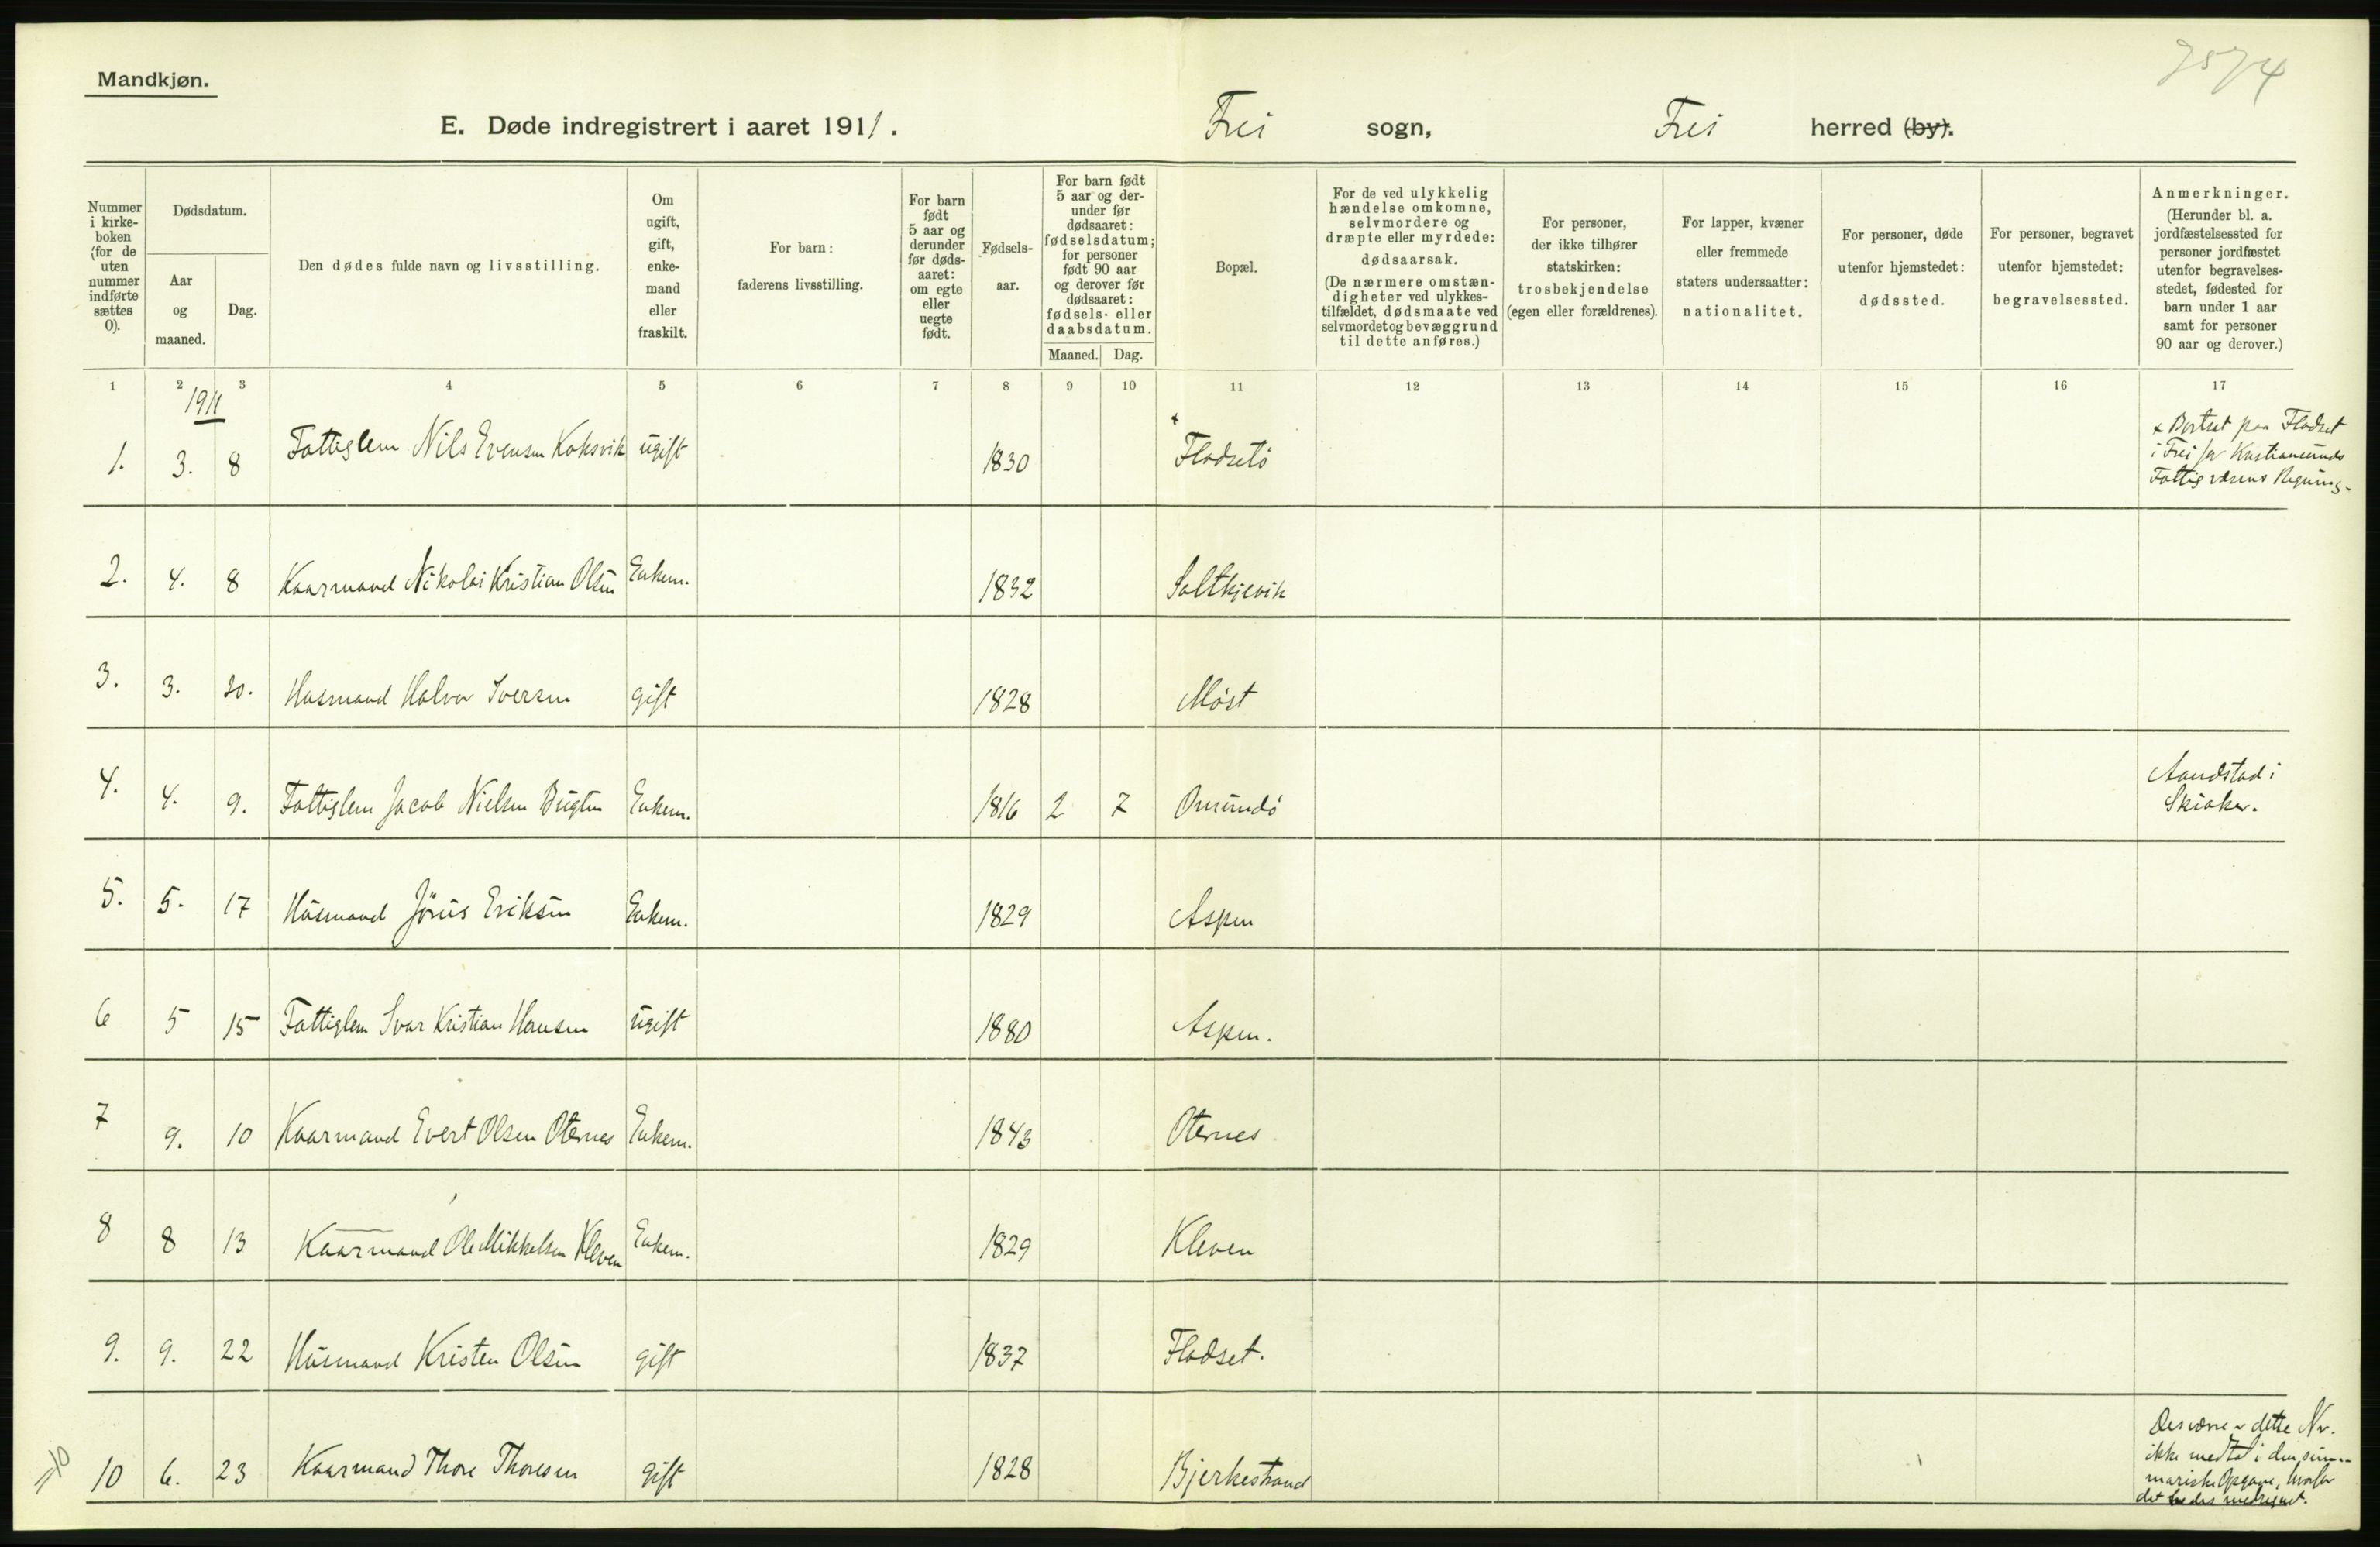 7574
Mandkjøn.
E. Døde indregistrert i aaret 1911. Frei sogn, Frei herred (by).
Nummer i kirke-boken (for de uten nummer indførte sættes 0).
Dødsdatum.
Aar og maaned.
Dag.
Den dødes fulde navn og livsstilling.
Om ugift, gift, enke-mand eller fraskilt.
For barn: faderens livsstilling.
For barn født 5 aar og derunder før døds-aaret: om egte eller uegte født.
Fødsels-aar.
For barn født 5 aar og der-under før dødsaaret: fødselsdatum; for personer født 90 aar og derover før dødsaaret: fødsels- eller daabsdatum.
Maaned. Dag.
Bopæl.
For de ved ulykkelig hændelse omkomne, selvmordere og dræpte eller myrdede: dødsaarsak. (De nærmere omstæn-digheter ved ulykkes-tilfældet, dødsmaate ved selvmordet og bevæggrund til dette anføres.)
For personer, der ikke tilhører statskirken: trosbekjendelse (egen eller forældrenes).
For lapper, kvæner eller fremmede staters undersaatter: nationalitet.
For personer, døde utenfor hjemstedet: dødssted.
For personer, begravet utenfor hjemstedet: begravelsessted.
Anmerkninger. (Herunder bl. a. jordfæstelsessted for personer jordfæstet utenfor begravelses-stedet, fødested for barn under 1 aar samt for personer 90 aar og derover.)
1 2 3 4 5 6 7 8 9 10 11 12 13 14 15 16 17
1911
1. 3. 8 Fattiglem Nils Evensen Koksvik ugift 1830 × Flodsetø × Bortsat paa Flodset
i Frei for Kristiansunds
Fattigvæsens Regning.
2. 4. 8 Kaarmand Nikolai Kristian Olsen Enkem. 1832 Saltkjelvik
3. 3. 20. Husmand Halvor Iversen gift 1828 Møst
4. 4. 9. Fattiglem Jacob Nielsen Bugten Enkem. 1816 2 7 Omsundø Aandstad i
Skiaker.
5. 5. 17 Husmand Jönis Eriksen Enkem. 1829 Aspen
6 5 15 Fattiglem Ivar Kristian Hansen ugift 1880 Aspen.
7 9. 10 Kaarmand Evert Olsen Oternes Enkem. 1843 Oternes
8 8 13 Kaarmand Ole Mikkelsen Kleven Enkem. 1829 Kleven
9. 9. 22 Husmand Kristen Olsen gift 1837 Flodset.
10 10 6. 23 Kaarmand Thore Thoresen gift 1828 Bjerkestrand Desværre er dette Nr.
ikke medtat i den sum-
mariske Opgave, hvorfor
det bedes medregnet.